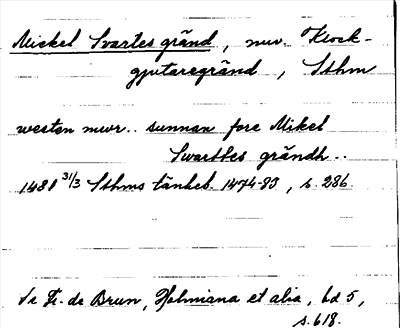 Mickel Svartes gränd, nuv. Klock-
gjutaregränd, Sthm
westen mwr.. sunnan fore Mikel
Swarthes grändh..
1481 31/3 Sthms tänkeb. 1474-83, s. 286.
Se Fr. de Brun, Holmiana et alia, bd 5,
s. 618.